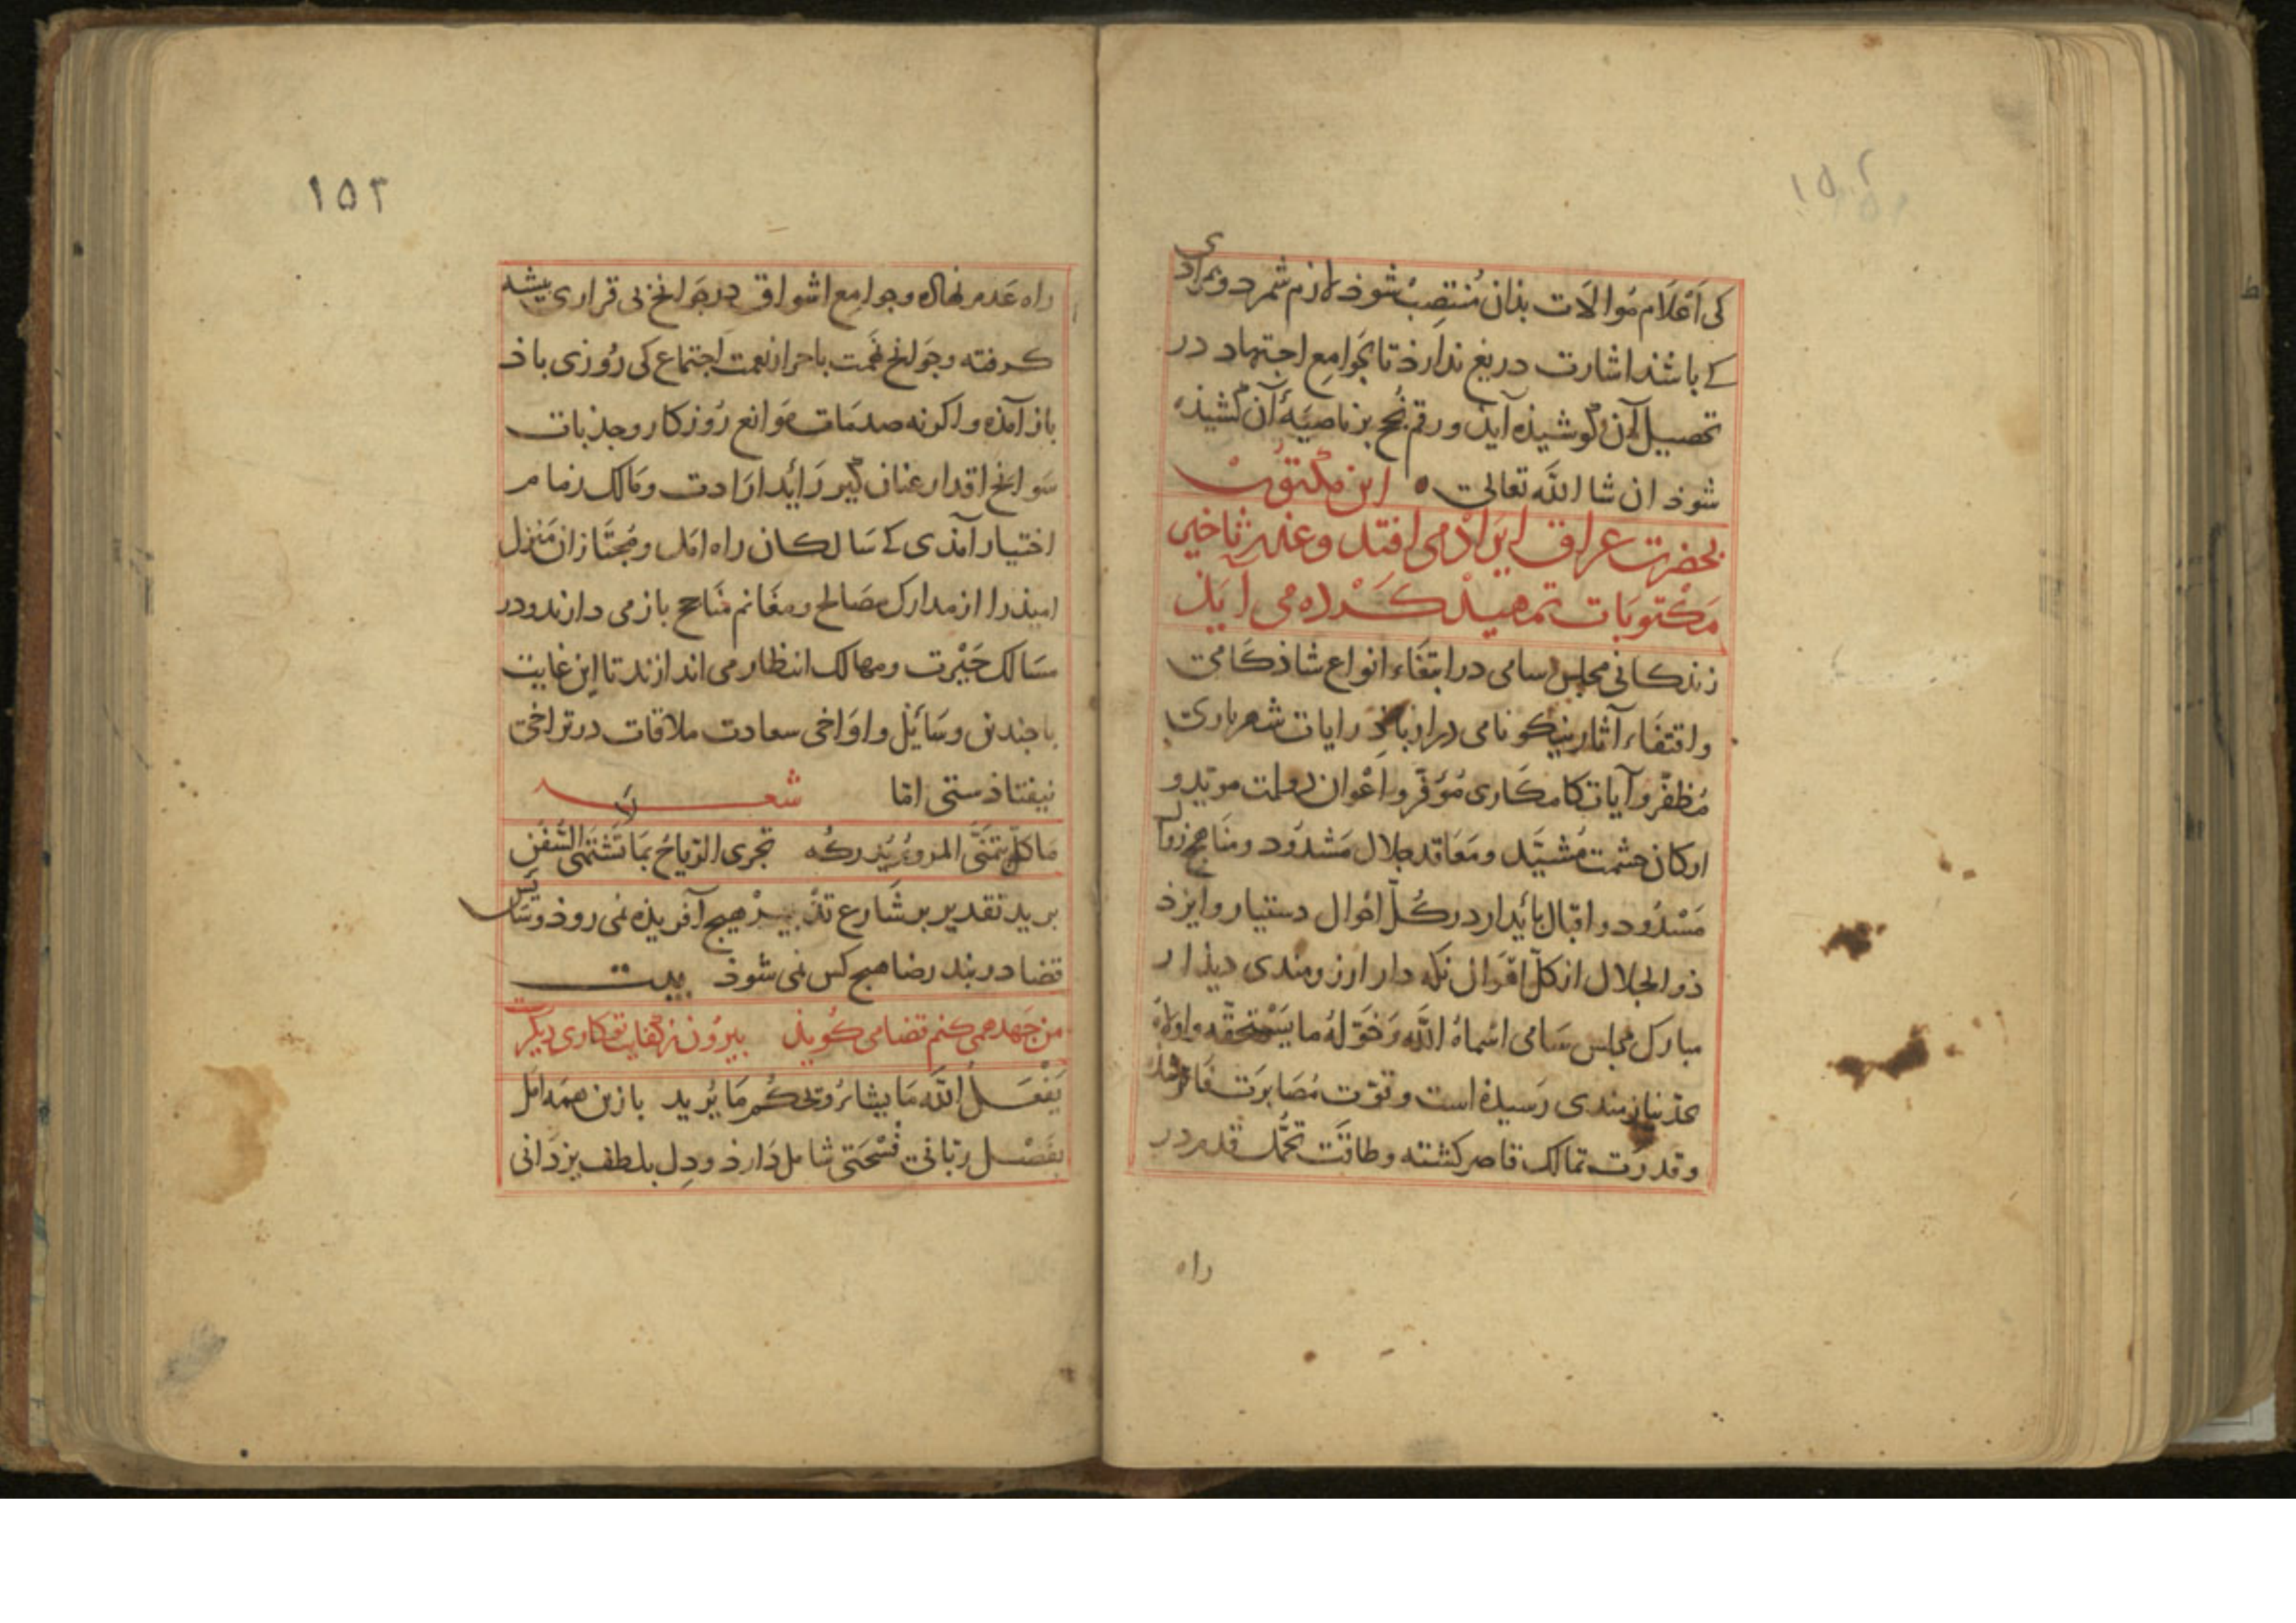 ۱۵۲
کی اَعْلَام مُوالَات بذان مُنتصِبْ شوذ لازم شمرد و بمرادی
کے باشذ اشارت دریغ ندارذ تا بجَوامِع اجتهاد در
تحصیل آن کوشیذه آیذ و رقم نُجح بر ناصیهٔ آن کشیذه
شوذ ان شا الله تعالی ه این مکتوب
بحضرت عراق ایراد می افتد و عذر تاخیر
مَکْتوبَات تمهید کَرْده می آیَذ
زندکانی مجلس سامی در ابتغَاء انواع شاذکَامی
و اقتفَاء آثار نیکو نامی دراز باذ رایات شهریاری
مُظفّر و آیات کامکَاری مُوَفّر و اَعْوان دولت موید و
ارکان حشمت مُشیَّد و مَعَاقد جلال مَشدُود و مناهج زوال
مَسْدُود و اقبال پایدار در کُلّ احْوال دستیار و ایزذ
ذو الجلال از کلّ اقْوال نکه دار ارزومندی دیذار
مبارک مجلس سَامی اسْماهُ الله وَ خَوّلهُ ما یَسْتحقّه و اولاهُ
بحذ نیازمندی رَسیذه است و قوّت مُصَابرَت
و قدرت تمالک قاصر کشته و طاقت تحمُّل در
راه
۱۵۳
راه عَدم نهاده و جوامِع اشواق در جَوانح بی قراری بیشه
کرفته و جَوانح نهمت باحراز نعمت اجتماع کی رُوزی باذ
باز آمَذه و اکر نه صدمَات مَوانع رُوزکار و جذبات
سَوانح اقدار عنان کیر رَائد ارَادت و مَالک زمام
اختیار آمذی کے سَالکان راه امَل و مُجتَازان مَنْزل
امیذ را از مدارک مصَالح و مغَانم مَنَاجح باز می دارند و در
مسَالک حَیْرت و مهالک انتظار می اندازند تا این غایت
با چندین وسَائل و اوَاخی سعادت ملاقات در تراخی
نیفتاذستی امّا شعر
مَا کلّ ما یتَمَنَّی المرءُ یُدْرکُه تجری الرّیاحُ بمَا لا تَشْتَهی السُّفُن
برید تقدیر بر شَارع تَدْبیرْ هیچ آفریذه نمی روذ و سَائس
قضا در بند رضا هیچ کس نمی شوذ بیت
من جَهد همی کنم قضا می کُویذ بیرُون ز کفایت تو کاری دیکرست
یَفْعَلُ الله مَا یشاءُ و یَحکُم مَا یُرید باز این همَه امَل
بفَضْل ربّانی فُسْحَتی شامل دَارذ و دِل بلطف یزدَانی